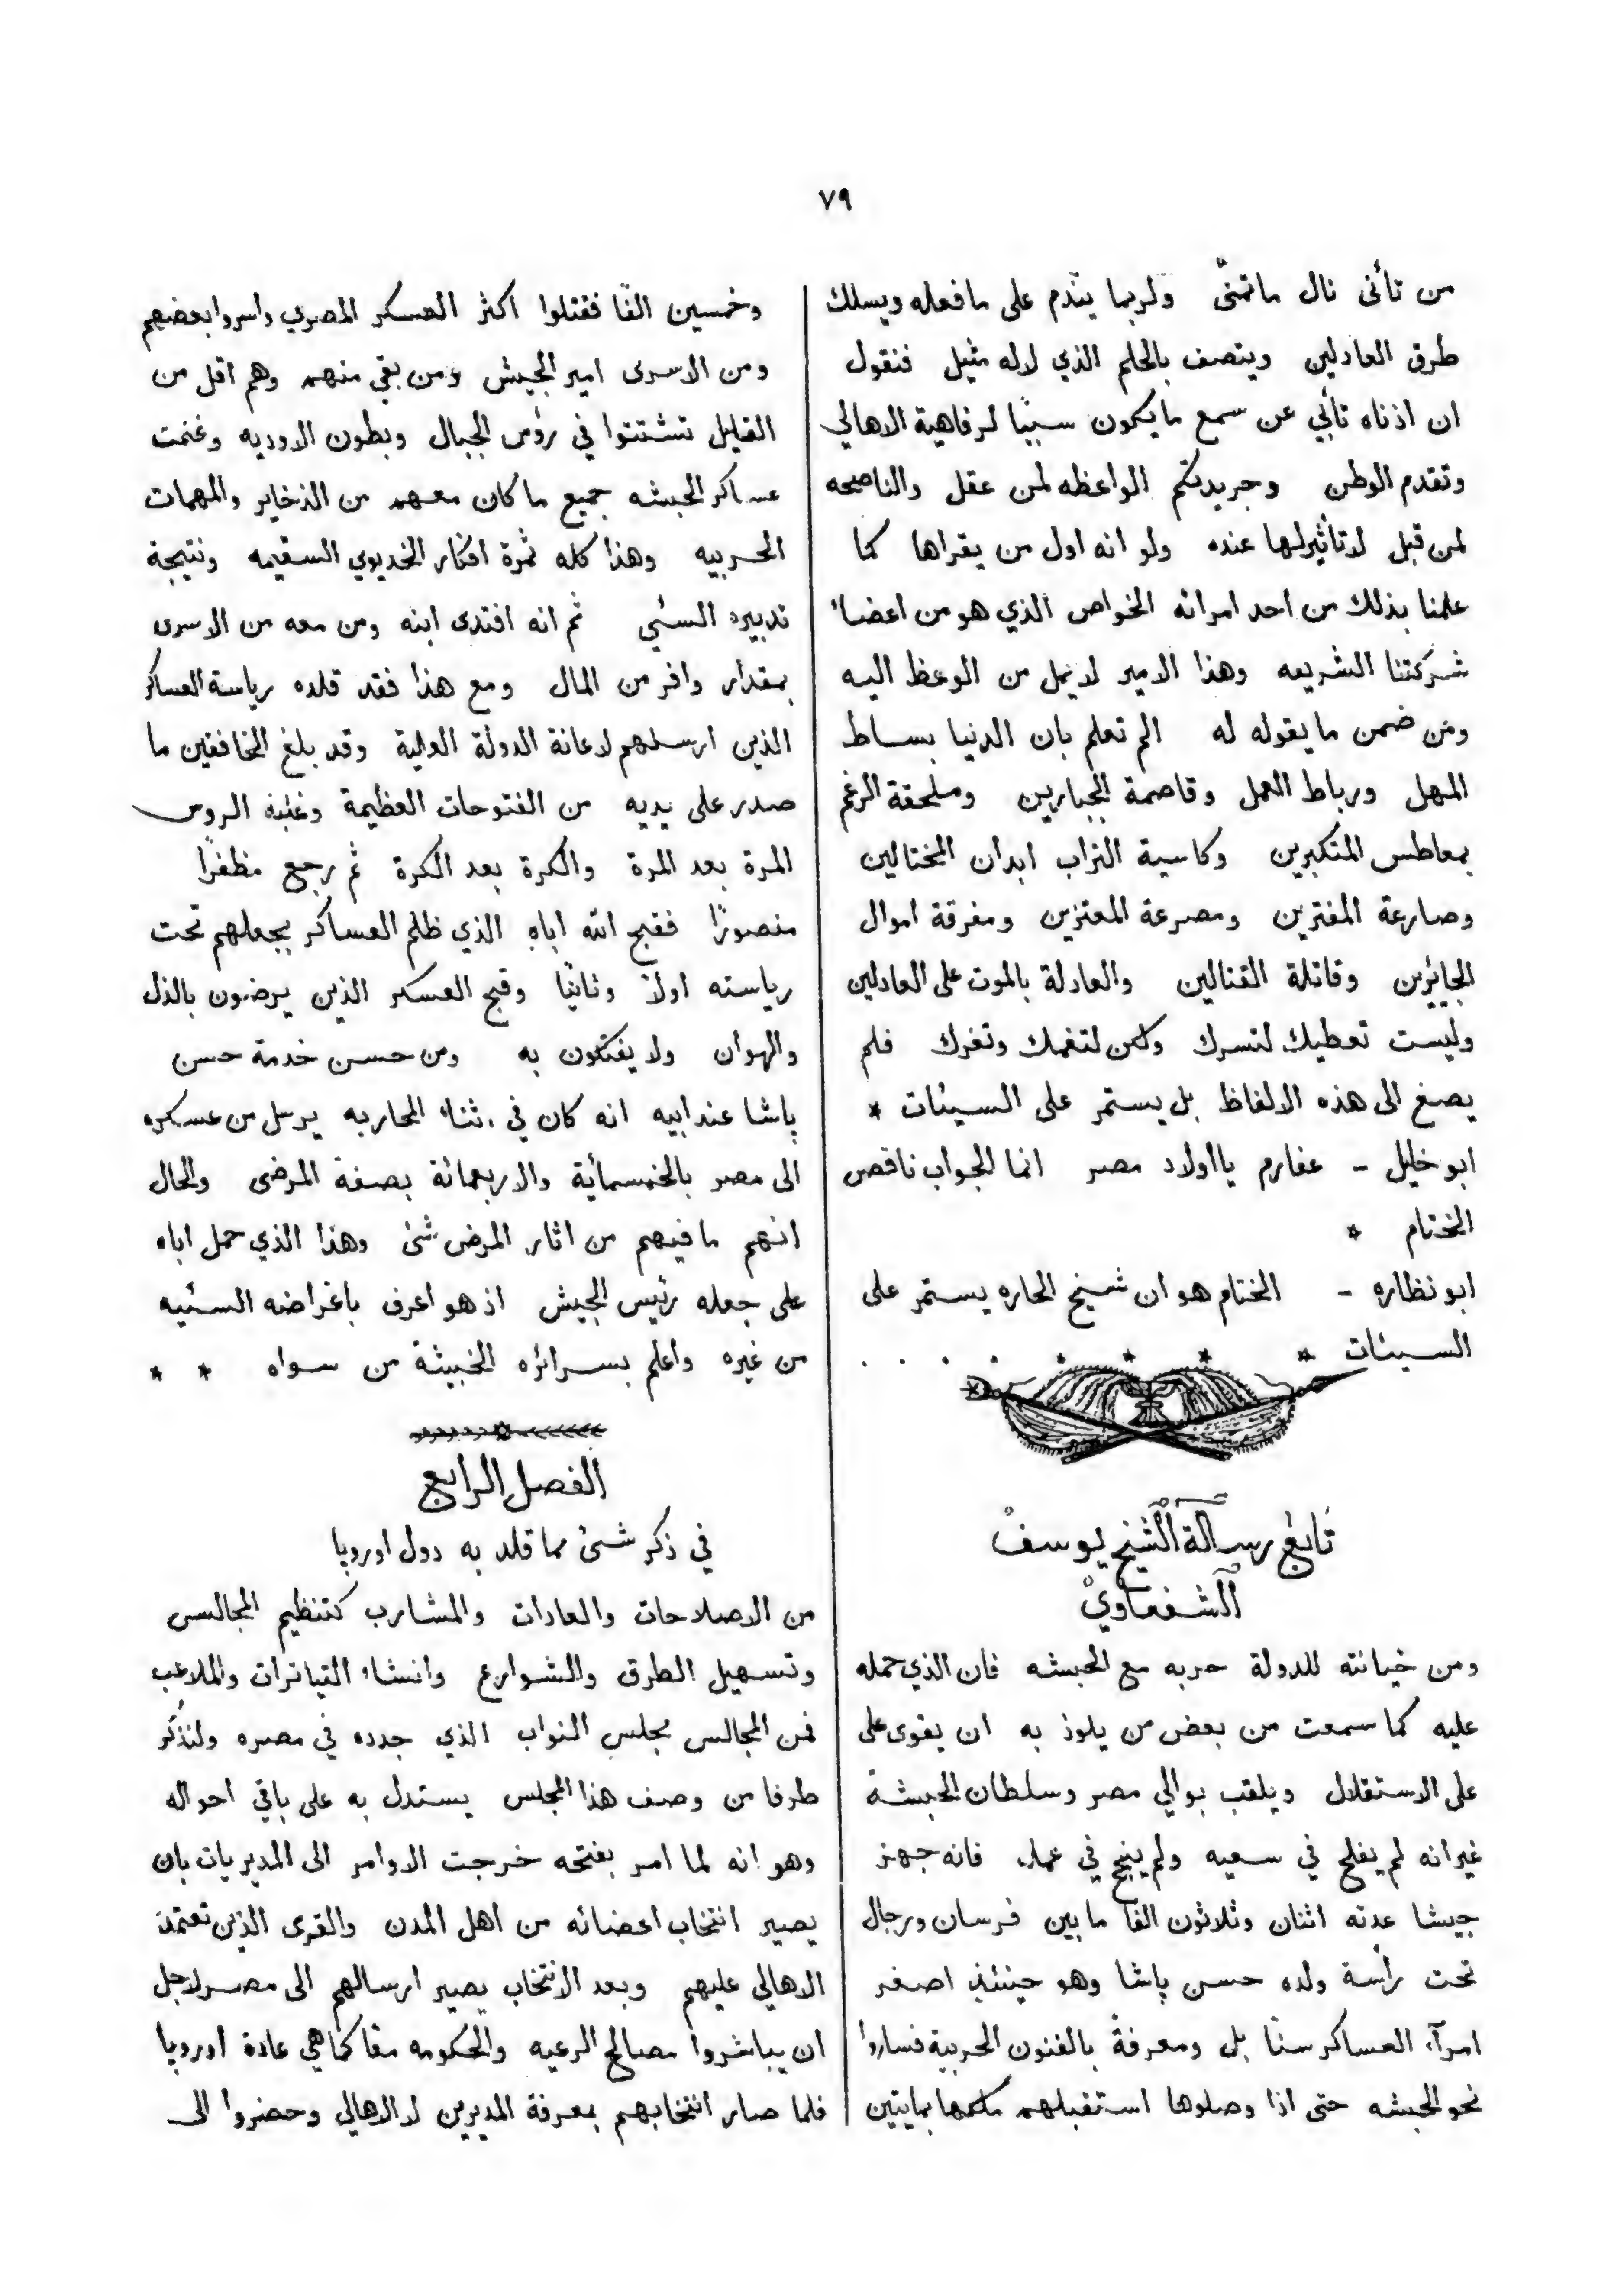 ٧٩
من تأنى نال ماتمنّى ولربما يندم على مافعله ويسلك
طرق العادلين ويتصف بالحلم الذي لاله مثيل فنقول
ان اذناه تأبي عن سمع مايكون سببًا لرفاهية الاهالي
وتقدم الوطن وجريدتكم الواعظه لمن عقل والناصحه
لمن قبل لاتأثيرلها عنده ولو انه اول من يقراها كما
علمنا بذلك من احد امرائه الخواص الذي هو من اعضاء
شركتنا الشريعه وهذا الامير لايمل من الوعظ اليه
ومن ضمن مايقوله له الم تعلم بان الدنيا بساط
المهل ورباط العمل وقاصمة الجبارين وملحقة الرغم
بمعاطس المتكبرين وكاسية التراب ابدان المختالين
وصارعة المفترين ومصرعة المعتزين ومفرقة اموال
الجايزين وقاتلة القتالين والعادلة بالموت على العادلين
وليست تعطيك لتسرك ولكن لتغمك وتغرك فلم
يصغ الى هذه الالفاظ بل يستمر على السيئات *
ابو خليل - عفارم يااولاد مصر انما الجواب ناقص
الختام *
ابو نظاره - الختام هو ان شيخ الحاره يستمر على
السيئات * * * * . . . .
تابع رسالة الشيخ يوسف
الشفعاوي
ومن خيانته للدولة حربه مع الحبشه فان الذي حمله
عليه كما سمعت من بعض من يلوذ به ان يقوى على
على الاستقلال ويلقب بوالي مصر وسلطان الحبشة
غير انه لم يفلح في سعيه ولم ينجح في عمله فانه جهز
جيشا عدته اثنان وثلاثون الفا مابين فرسان ورجال
تحت رأسة ولده حسن پاشا وهو حينئذٍ اصغر
امرآء العساكر سنًا بل ومعرفةً بالفنون الحربية فساروا
نحو الحبشه حتى اذا وصلوها استقبلهم ملكها بمايتين
وخمسين الفًا فقتلوا اكثر العسكر المصري واسروا بعضهم
ومن الاسرى امير الجيش ومن بقي منهم وهم اقل من
القليل تشتتوا في رؤس الجبال وبطون الاوديه وغنمت
عساكر الحبشه جميع ماكان معهم من الذخاير والمهمات
الحربيه وهذا كله ثمرة افكار الخديوي السقيمه ونتيجة
تدبيره السئي ثم انه افتدى ابنه ومن معه من الاسرى
بمقدار وافر من المال ومع هذا فقد قلده رياسة العساكر
الذين ارسلهم لاعانة الدولة العلية وقد بلغ الخافقين ما
صدر على يديه من الفتوحات العظيمة وغلبة الروس
المرة بعد المرة والكرة بعد الكرة ثم رجع مظفرًا
منصورًا فقبح الله اباه الذي ظلم العساكر بجعلهم تحت
رياسته اولاً وثانيًا وقبح العسكر الذين يرضون بالذل
والهوان ولا يفتكون به ومن حسن خدمة حسن
پاشا عند ابيه انه كان في اثناء المحاربه يرسل من عسكره
الى مصر بالخمسمائة والاربعمائة بصفة المرضى والحال
انهم مافيهم من اثار المرض شئ وهذا الذي حمل اباه
على جعله رئيس الجيش اذ هو اعرف باغراضه السئيه
من غيره واعلم بسرائره الخبيثة من سواه * *
الفصل الرابع
في ذكر شئ مما قلد به دول اوروپا
من الاصلاحات والعادات والمشارب كتنظيم المجالس
وتسهيل الطرق والشوارع وانشاء التياترات والملاعب
فمن المجالس مجلس النواب الذي جدده في مصره ولنذكر
طرفا من وصف هذا المجلس يستدل به على باقي احواله
وهو انه لما امر بفتحه خرجت الاوامر الى المديريات بان
يصير انتخاب اعضائه من اهل المدن والقرى الذين تعتمد
الاهالي عليهم وبعد الانتخاب يصير ارسالهم الى مصر لاجل
ان يباشروا مصالح الرعيه والحكومه معًا كما هي عادة اوروپا
فلما صار انتخابهم بمعرفة المديرين لا الاهالي وحضروا الى